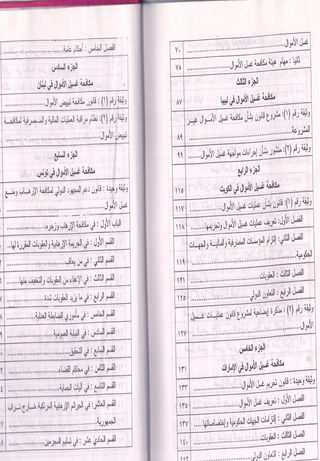 غسل الأموال ٧٠
ثانيا : مهام هيئة مكافحة غسل الأموال ٧٨
الجزء الثالث
مكافحة غسيل الأموال في ليبيا ٨٧
وثيقة رقم (١): مشروع قانون بشأن مكافحة غسيل الأموال غير
المشروعة ٨٩
وثيقة رقم (٢): منشور بشأن إجراءات مواجهة غسيل الأموال ٩٩
الجزء الرابع
مكافحة غسيل الأموال في الكويت ١١٥
وثيقة رقم (١): قانون بشأن عمليات غسيل الأموال ١١٧
الفصل الأول: تعريف عمليات غسيل الأموال وتجريمها ١١٨
الفصل الثاني: إلتزام المؤسسات المصرفية والمالية والجهات
الحكومية ١١٩
الفصل الثالث : العقوبات ١٢١
الفصل الرابع : التعاون الدولي ١٢٥
وثيقة رقم (٢) : مذكرة إيضاحية لمشروع قانون عمليات غسيل
الأموال ١٢٧
الجزء الخامس
مكافحة غسيل الأموال في الإمارات ١٣١
وثيقة وحيدة : قانون تجريم غسل الأموال ١٣٣
الباب الأول : تعاريف ١٣٥
الفصل الثاني : إلتزامات الجهات الحكومية وإختصاصاتها ١٣٧
الفصل الثالث : العقوبات ١٤٠
الفصل الرابع : التعاون الدولي ١٤٢
الفصل الخامس : أحكام عامة
الجزء السادس
مكافحة غسيل الأموال في لبنان
وثيقة رقم (١): قانون مكافحة تبييض الأموال
وثيقة رقم (٢): نظام مراقبة العمليات المالية والمصرفية لمكافحة
تبييض الأموال
الجزء السابع
مكافحة غسيل الأموال في تونس
وثيقة وحيدة : قانون دعم المجهود الدولي لمكافحة الإرهاب ومنع
غسل الأموال
الباب الأول : في مكافحة الإرهاب وزجره
القسم الأول : في الجريمة الإرهابية والعقوبات المقررة لها
القسم الثاني : فيمن يعاقب
القسم الثالث : في الإعفاء من العقوبات والتخفيف منها
القسم الرابع : في ما يزيد العقوبات شدة
القسم الخامس : في مأموري الضابطة العدلية
القسم السادس : في النيابة العمومية
القسم السابع : في التحقيق
القسم الثامن : في محاكم القضاء
القسم التاسع : في آليات الحماية
القسم العاشر : في الجرائم الإرهابية المرتكبة خارج تراب
الجمهورية
القسم الحادي عشر : في تسليم المجرمين